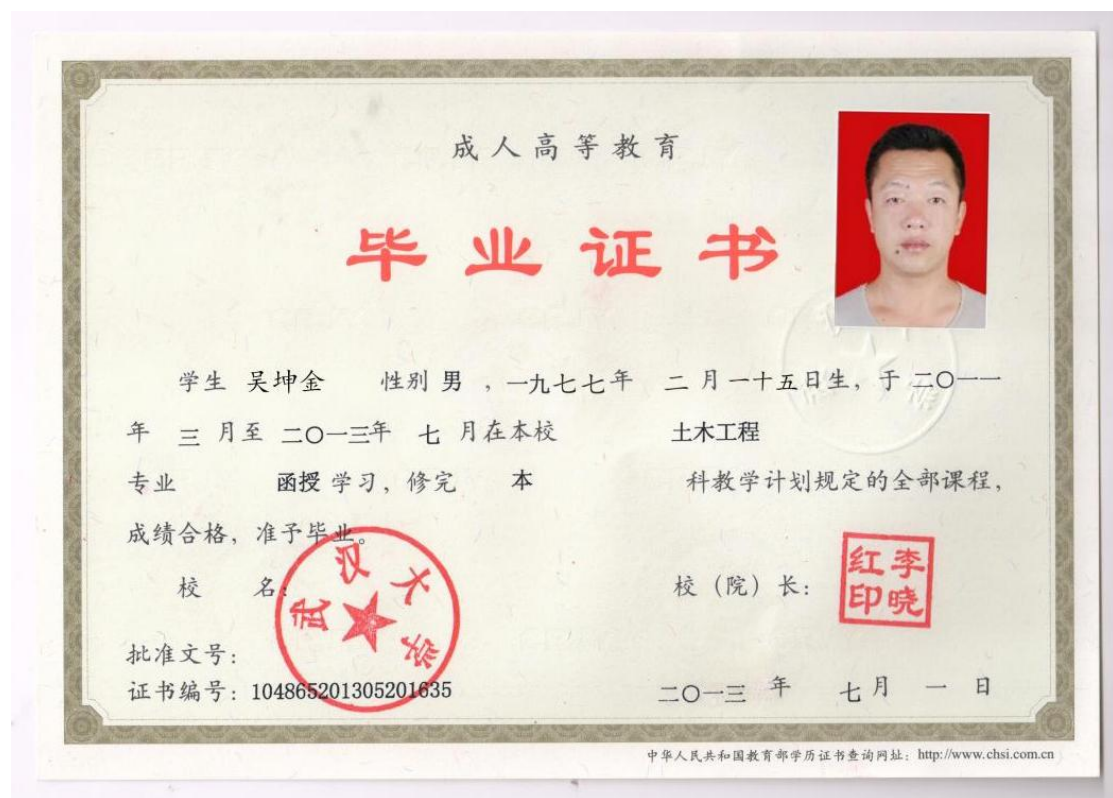 成人高等教育
毕业证书
学生 吴坤金 性别 男 ，一九七七年 二月一十五日生，于二〇一一
年 三 月至 二〇一三年 七 月在本校 土木工程
专业 函授 学习，修完 本 科教学计划规定的全部课程，
成绩合格，准予毕业。
校 名： 校（院）长：
武汉大学
李晓红印
批准文号：
证书编号：104865201305201635 二〇一三 年 七月 一 日
中华人民共和国教育部学历证书查询网址：http://www.chsi.com.cn